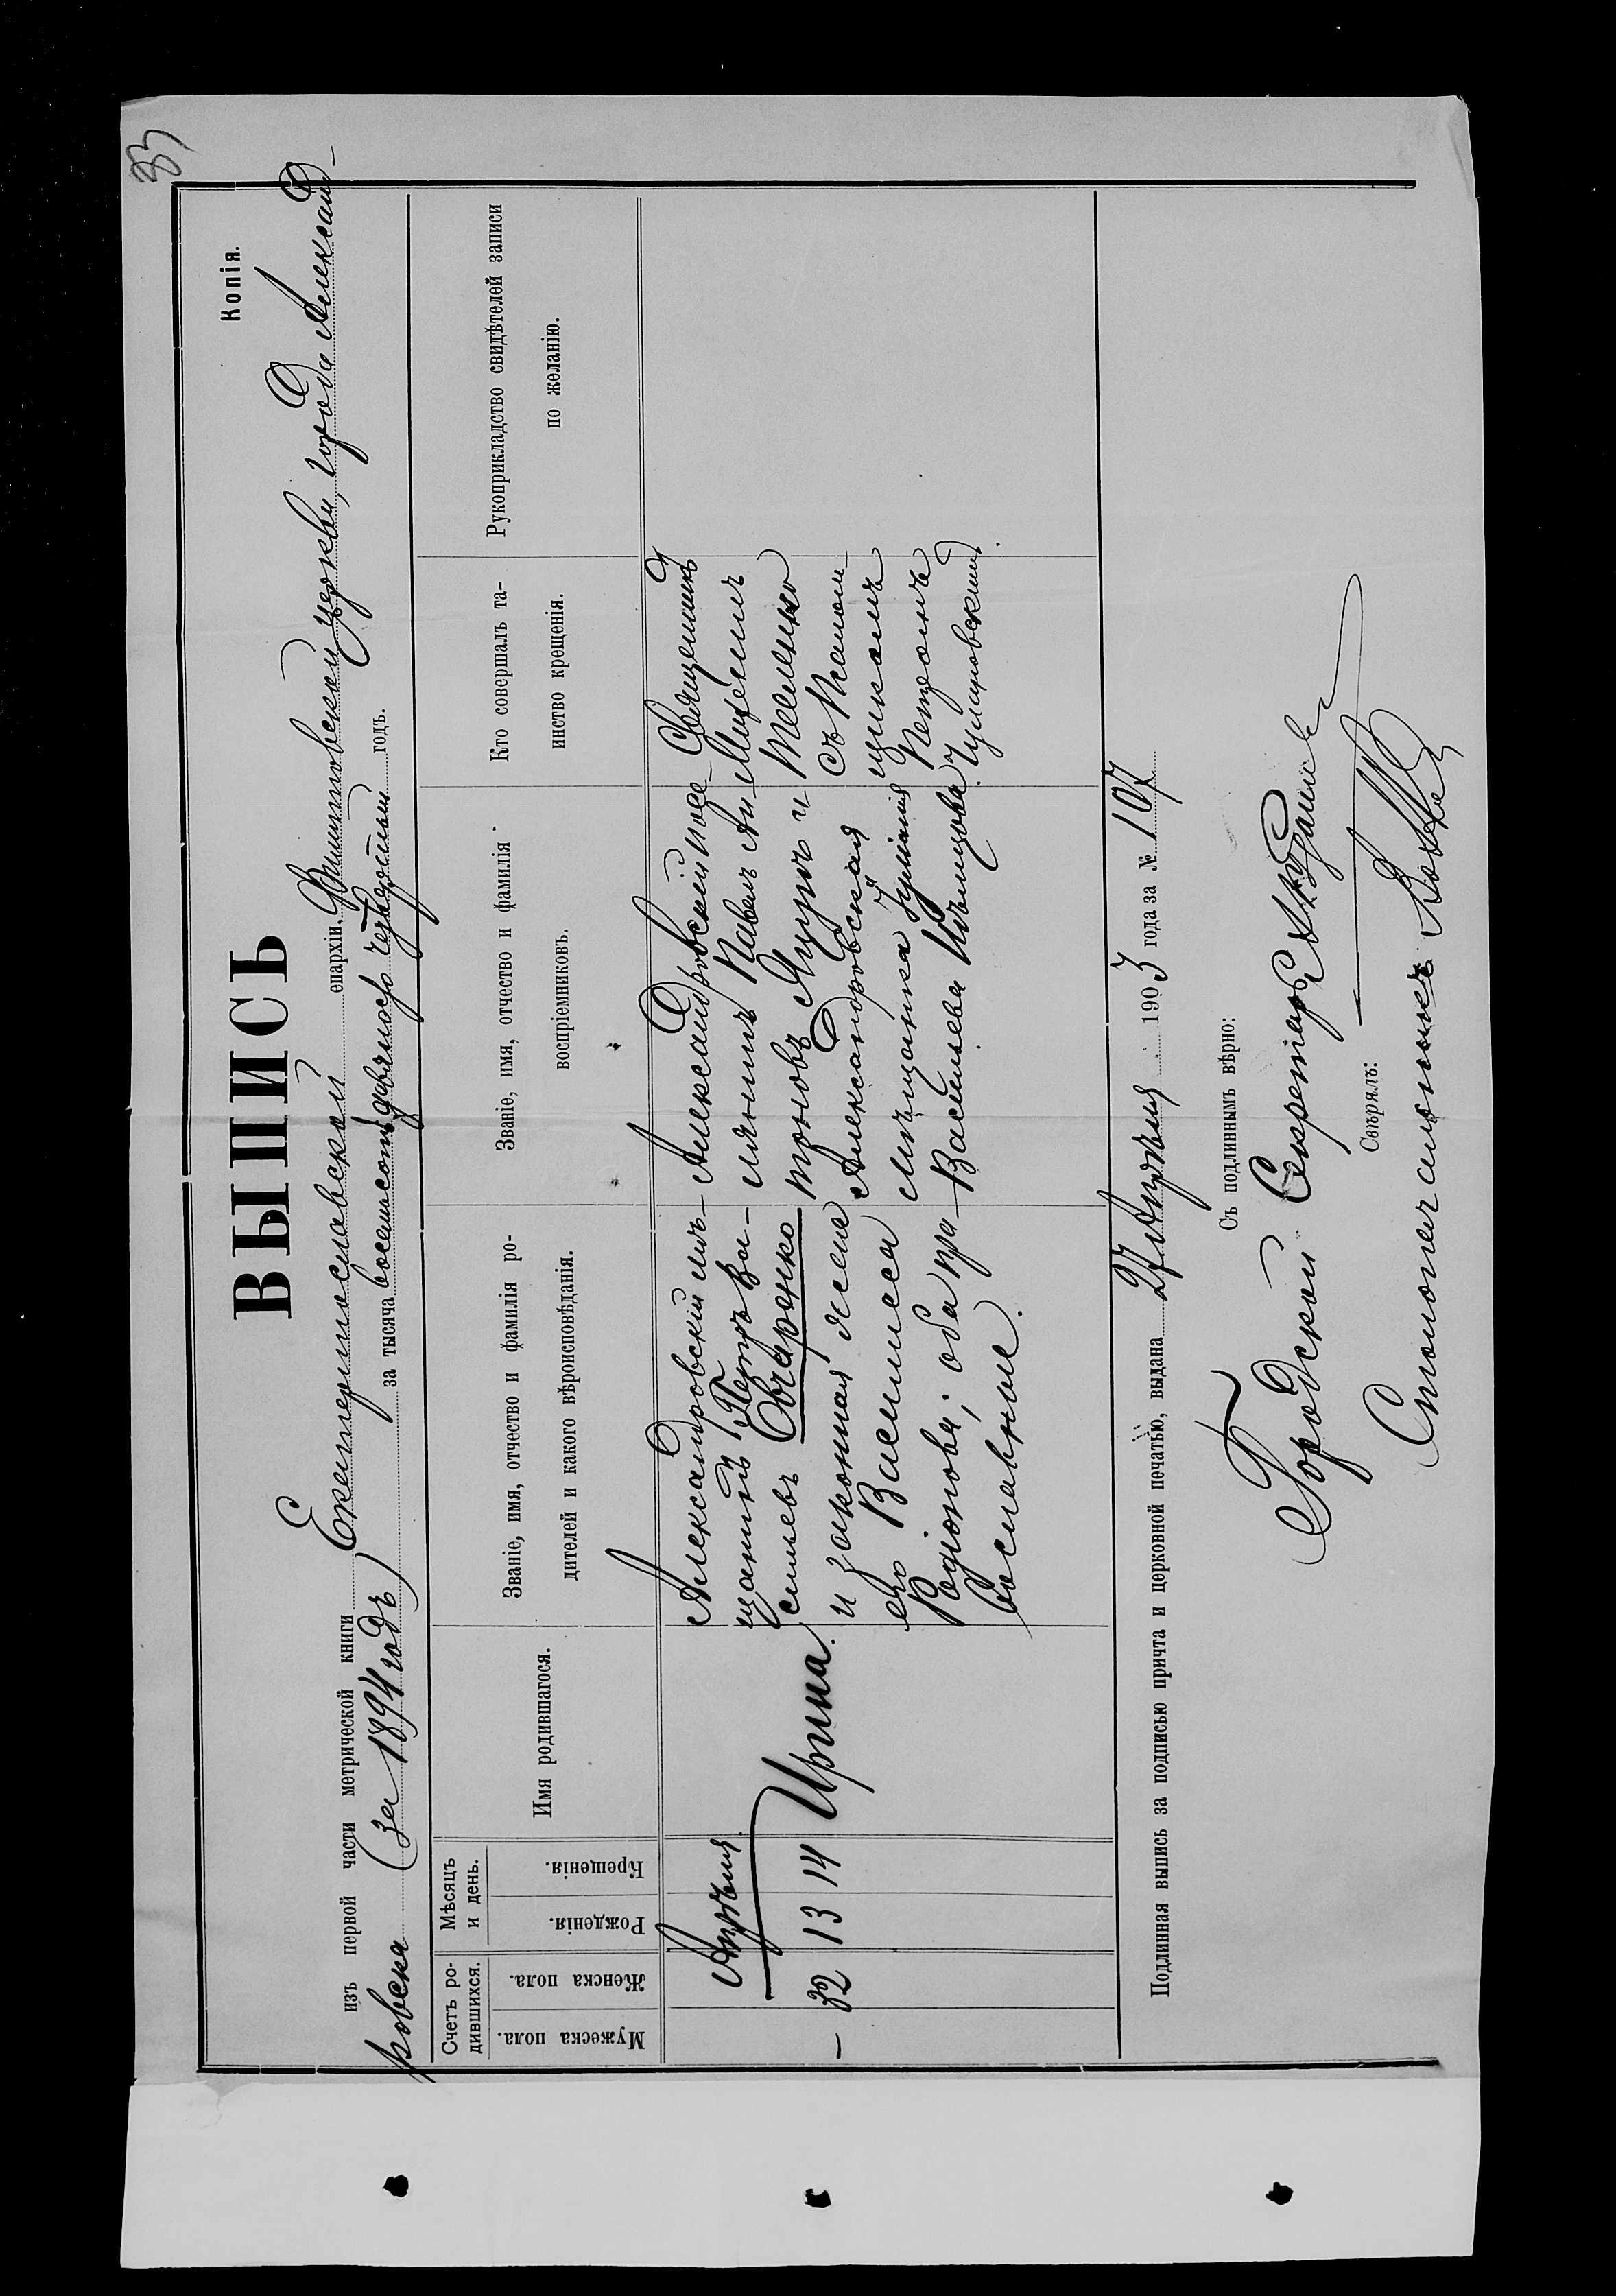 33
Копія.
ВЫПИСЬ
изъ первой части метрической книги Екатеринославской епархіи, церкви, города Александ-
ровска (за 1894 годъ) за тысяча восемьсотъ девяносто четвертый годъ.
Счетъ ро-
дившихся.
Мужеска пола.
Женска пола.
Мѣсяцъ
и день.
Рожденія.
Крещенія.
Имя родившагося.
Званіе, имя, отчество и фамилія ро-
дителей и какого вѣроисповѣданія.
Званіе, имя, отчество и фамилія
воспріемниковъ.
Кто совершалъ та-
инство крещенія.
Рукоприкладство свидѣтелей записи
по желанію.
—
32
Апрѣля
13
14
Ирина.
Александровскій мѣ-
щанинъ Петръ Ва-
сильевъ Овчаренко
и законная жена
его Василисса
Родіонова; оба пра-
вославные.
Александровскій посе-
лянинъ Павелъ Ан-
тоновъ Яцунъ и
Александровская
мѣщанка Іуліанія
Васильева
Священникъ
съ псалом-
щикомъ
Петромъ
Подлинная выпись за подписью причта и церковной печатью, выдана 27 Апрѣля 1903 года за № 107
Съ подлиннымъ вѣрно:
Городской Секретарь
Свѣрялъ:
Столоначальникъ